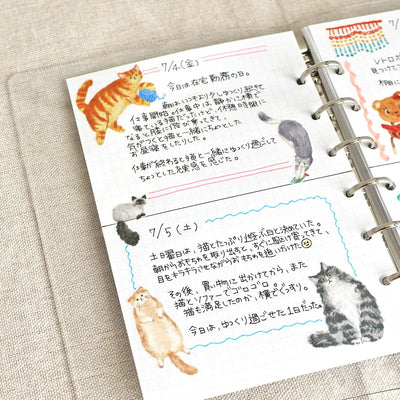 7/4(金)
今日は在宅勤務の日。
朝はいつもより少しゆっくり起きて
仕事開始。仕事中は静かに横で
寝ている猫だったけど、休憩時間に
なると膝に飛び乗ってきて、
気がつくと猫と一緒にちょっとした
お昼寝をしたりした。
仕事が終わると猫と一緒にゆっくり過ごして
ちょっとした疲労感を感じた。
7/5(土)
土曜日は、猫とたっぷり遊ぶ日と決めていた。
朝からおもちゃを取り出すと、すぐに駆け寄ってきて、
目をキラキラさせながらおもちゃを追いかけた
その後、買い物に出かけてから、また
猫とソファーでゴロゴロ
猫も満足したのか、横でぐっすり。
今日は、ゆっくり過ごせた1日だった。
レトロ
見つけ